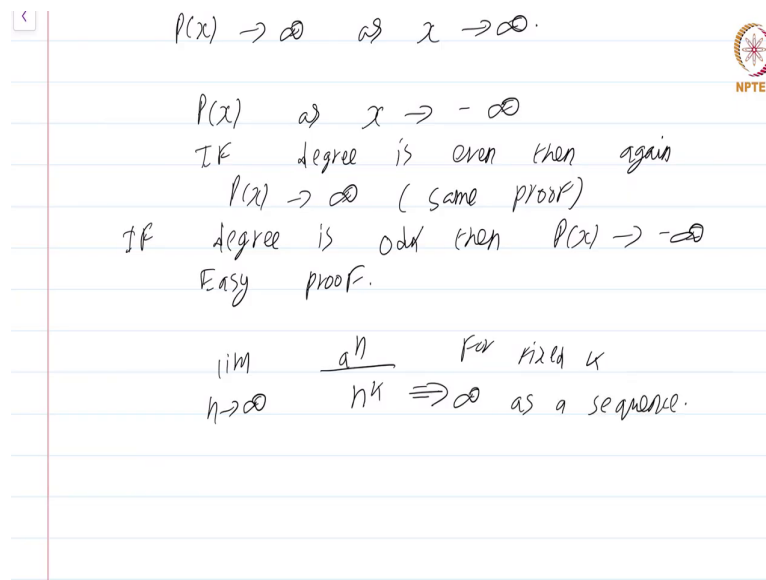 P(x) → ∞ as x → ∞.
NPTE
P(x) as x → - ∞
IF degree is even then again
P(x) → ∞ ( same proof)
IF degree is odd then P(x) → -∞
Easy proof.
lim aⁿ For fixed k
n→∞ nᵏ ⇒ ∞ as a sequence.